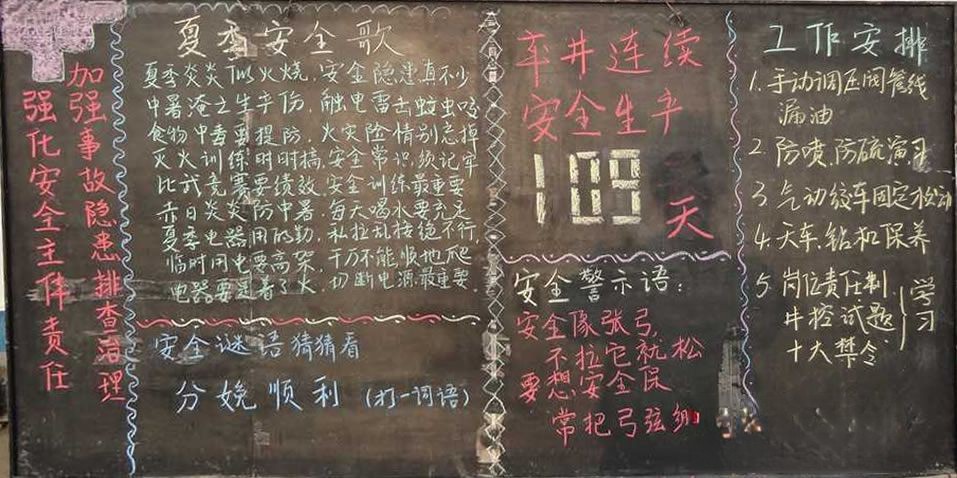 加强事故隐患排查治理
强化安全主体责任
夏季安全歌
夏季炎炎似火烧,安全隐患真不少
中暑淹亡生产伤,触电雷击蚊虫咬
食物中毒要提防,火灾险情别忘掉
灭火训练时时搞,安全常识须记牢
比武竞赛要绩效,安全训练最重要
赤日炎炎防中暑,每天喝水要充足
夏季电器用的勤,私拉乱接绝不行,
临时用电要高架,千万不能顺地爬
电器要是着了火,切断电源最重要.
安全谜语猜猜看
分娩顺利(打一词语)
本井连续
安全生产
109
天
安全警示语:
安全像张弓,
不拉它就松
要想安全保
常把弓弦
工作安排
1.手动调压阀管线
漏油
2.防喷.防硫演习
3.气动绞车固定松动
4.天车.钻机保养
5.岗位责任制
井控试题
十大禁令
学习